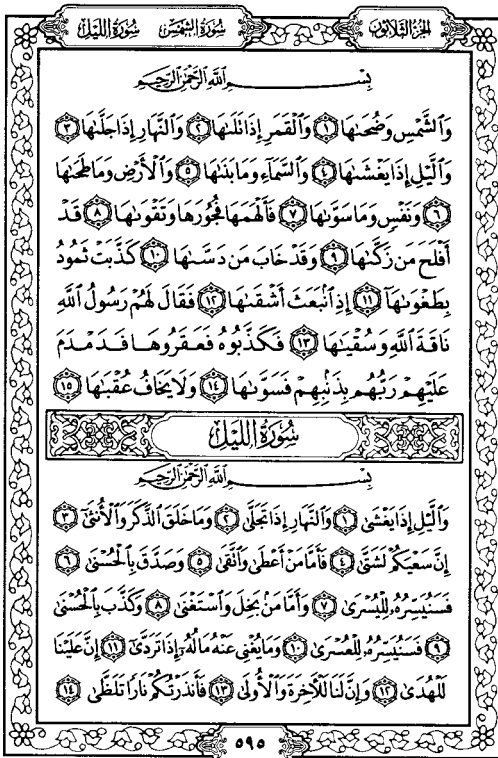 الجزء الثلاثون سورة الشمس سورة الليل
بِسْمِ اللَّهِ الرَّحْمَٰنِ الرَّحِيمِ
وَالشَّمْسِ وَضُحَىٰهَا ١ وَالْقَمَرِ إِذَا تَلَىٰهَا ٢ وَالنَّهَارِ إِذَا جَلَّىٰهَا ٣
وَالَّيْلِ إِذَا يَغْشَىٰهَا ٤ وَالسَّمَآءِ وَمَا بَنَىٰهَا ٥ وَالْأَرْضِ وَمَا طَحَىٰهَا
٦ وَنَفْسٍ وَمَا سَوَّىٰهَا ٧ فَأَلْهَمَهَا فُجُورَهَا وَتَقْوَىٰهَا ٨ قَدْ
أَفْلَحَ مَن زَكَّىٰهَا ٩ وَقَدْ خَابَ مَن دَسَّىٰهَا ١٠ كَذَّبَتْ ثَمُودُ
بِطَغْوَىٰهَآ ١١ إِذِ انۢبَعَثَ أَشْقَىٰهَا ١٢ فَقَالَ لَهُمْ رَسُولُ اللَّهِ
نَاقَةَ اللَّهِ وَسُقْيَٰهَا ١٣ فَكَذَّبُوهُ فَعَقَرُوهَا فَدَمْدَمَ
عَلَيْهِمْ رَبُّهُم بِذَنۢبِهِمْ فَسَوَّىٰهَا ١٤ وَلَا يَخَافُ عُقْبَٰهَا ١٥
سُورَةُ اللَّيْلِ
بِسْمِ اللَّهِ الرَّحْمَٰنِ الرَّحِيمِ
وَالَّيْلِ إِذَا يَغْشَىٰ ١ وَالنَّهَارِ إِذَا تَجَلَّىٰ ٢ وَمَا خَلَقَ الذَّكَرَ وَالْأُنثَىٰٓ ٣
إِنَّ سَعْيَكُمْ لَشَتَّىٰ ٤ فَأَمَّا مَنْ أَعْطَىٰ وَاتَّقَىٰ ٥ وَصَدَّقَ بِالْحُسْنَىٰ ٦
فَسَنُيَسِّرُهُۥ لِلْيُسْرَىٰ ٧ وَأَمَّا مَنۢ بَخِلَ وَاسْتَغْنَىٰ ٨ وَكَذَّبَ بِالْحُسْنَىٰ
٩ فَسَنُيَسِّرُهُۥ لِلْعُسْرَىٰ ١٠ وَمَا يُغْنِي عَنْهُ مَالُهُۥٓ إِذَا تَرَدَّىٰٓ ١١ إِنَّ عَلَيْنَا
لَلْهُدَىٰ ١٢ وَإِنَّ لَنَا لَلْآخِرَةَ وَالْأُولَىٰ ١٣ فَأَنذَرْتُكُمْ نَارًا تَلَظَّىٰ ١٤
٥٩٥